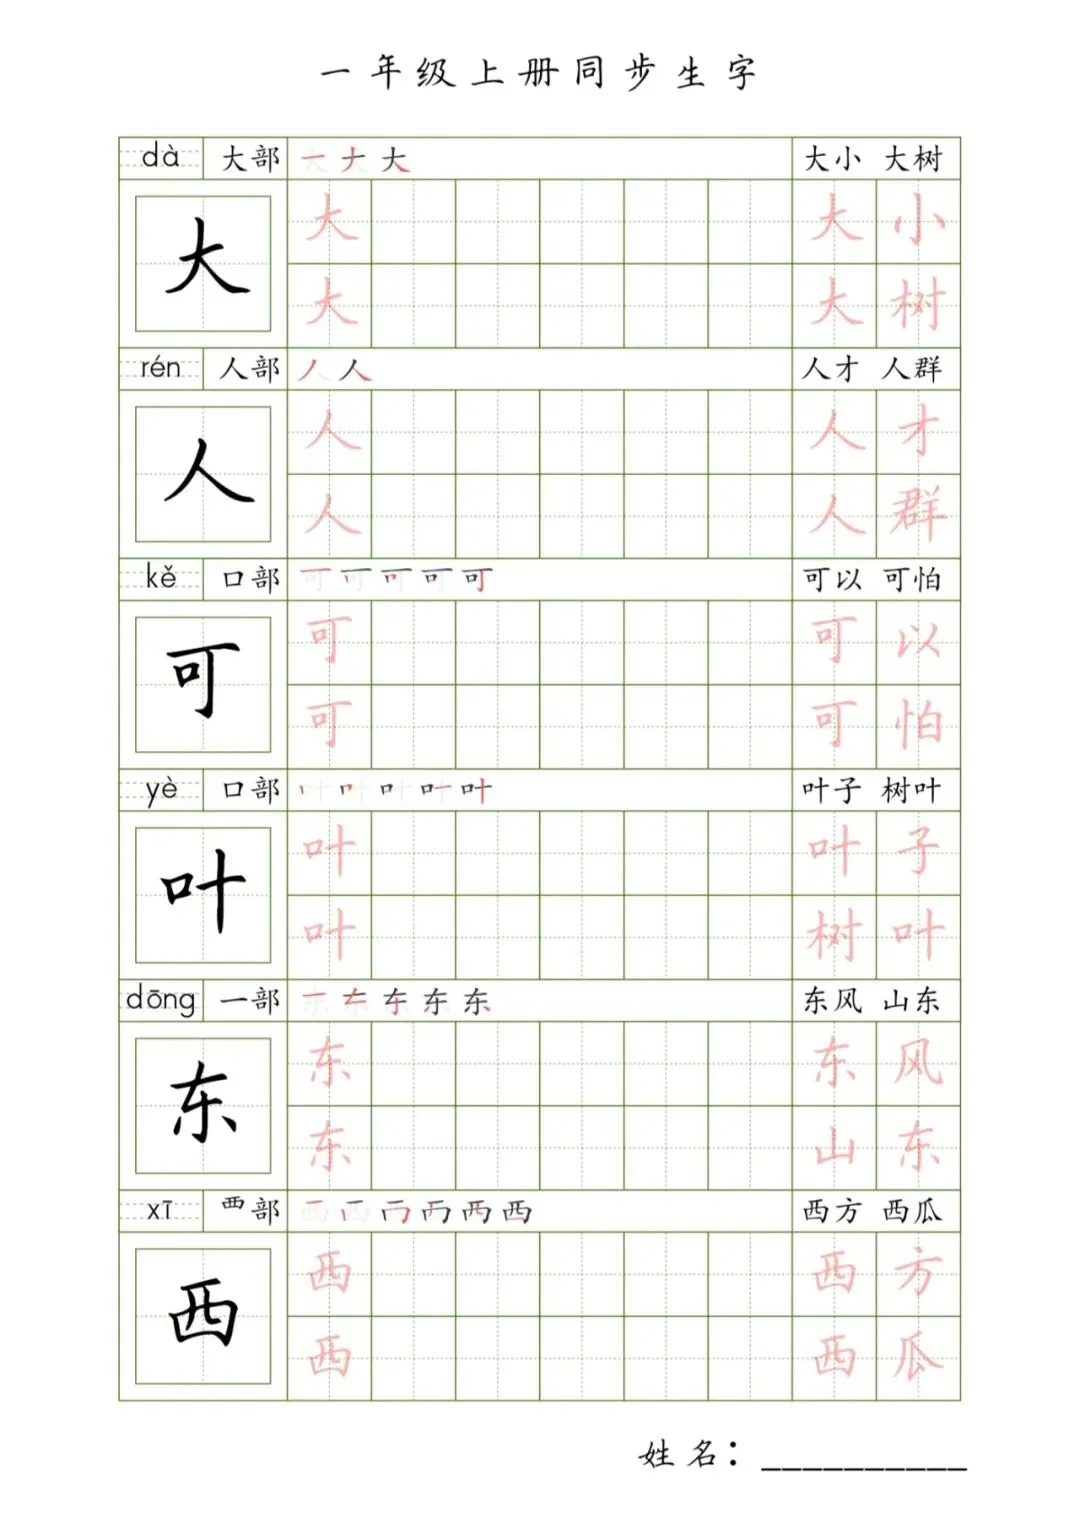 一年级上册同步生字
dà 大部 一ナ大 大小 大树
大 大 大 小
大 大 树
rén 人部 丿人 人才 人群
人 人 人 才
人 人 群
kě 口部 可 可以 可怕
可 可 可 以
可 可 怕
yè 口部 叶 叶子 树叶
叶 叶 叶 子
叶 树 叶
dōng 一部 东 东风 山东
东 东 东 风
东 山 东
xī 覀部 西 西方 西瓜
西 西 西 方
西 西 瓜
姓名：__________